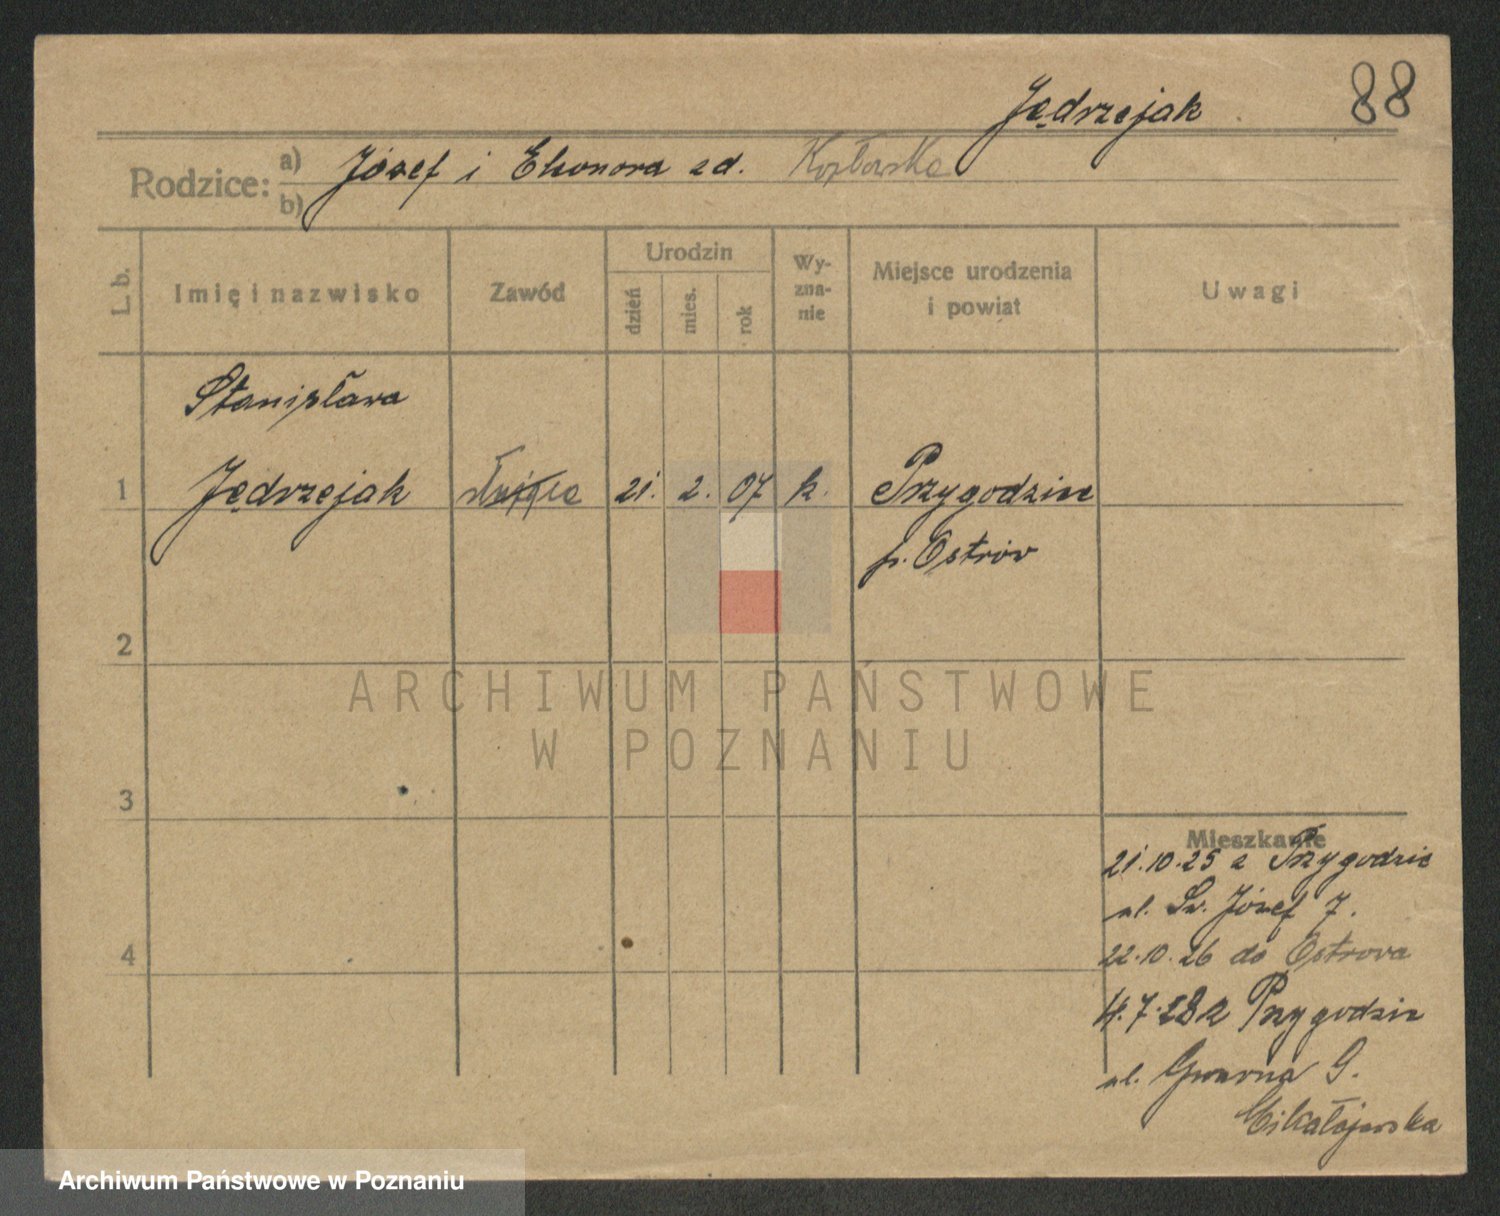 88
Jędrzejak
Rodzice:
a) Józef i Eleonora zd. Kozłowska
b)
L. b.
Imię i nazwisko
Zawód
Urodzin
dzień
mies.
rok
Wy-
zna-
nie
Miejsce urodzenia
i powiat
Uwagi
Stanisława
1 Jędrzejak służąca 21. 2. 07 k. Przygodzice
p. Ostrów
2
3
4
ARCHIWUM PAŃSTWOWE
W POZNANIU
Mieszkanie
21.10.25 z Przygodzic
ul. Św. Józef 7.
22.10.26 do Ostrowa
4.7.28 z Przygodzic
ul. Gwarna 9.
Mikołajewska
Archiwum Państwowe w Poznaniu